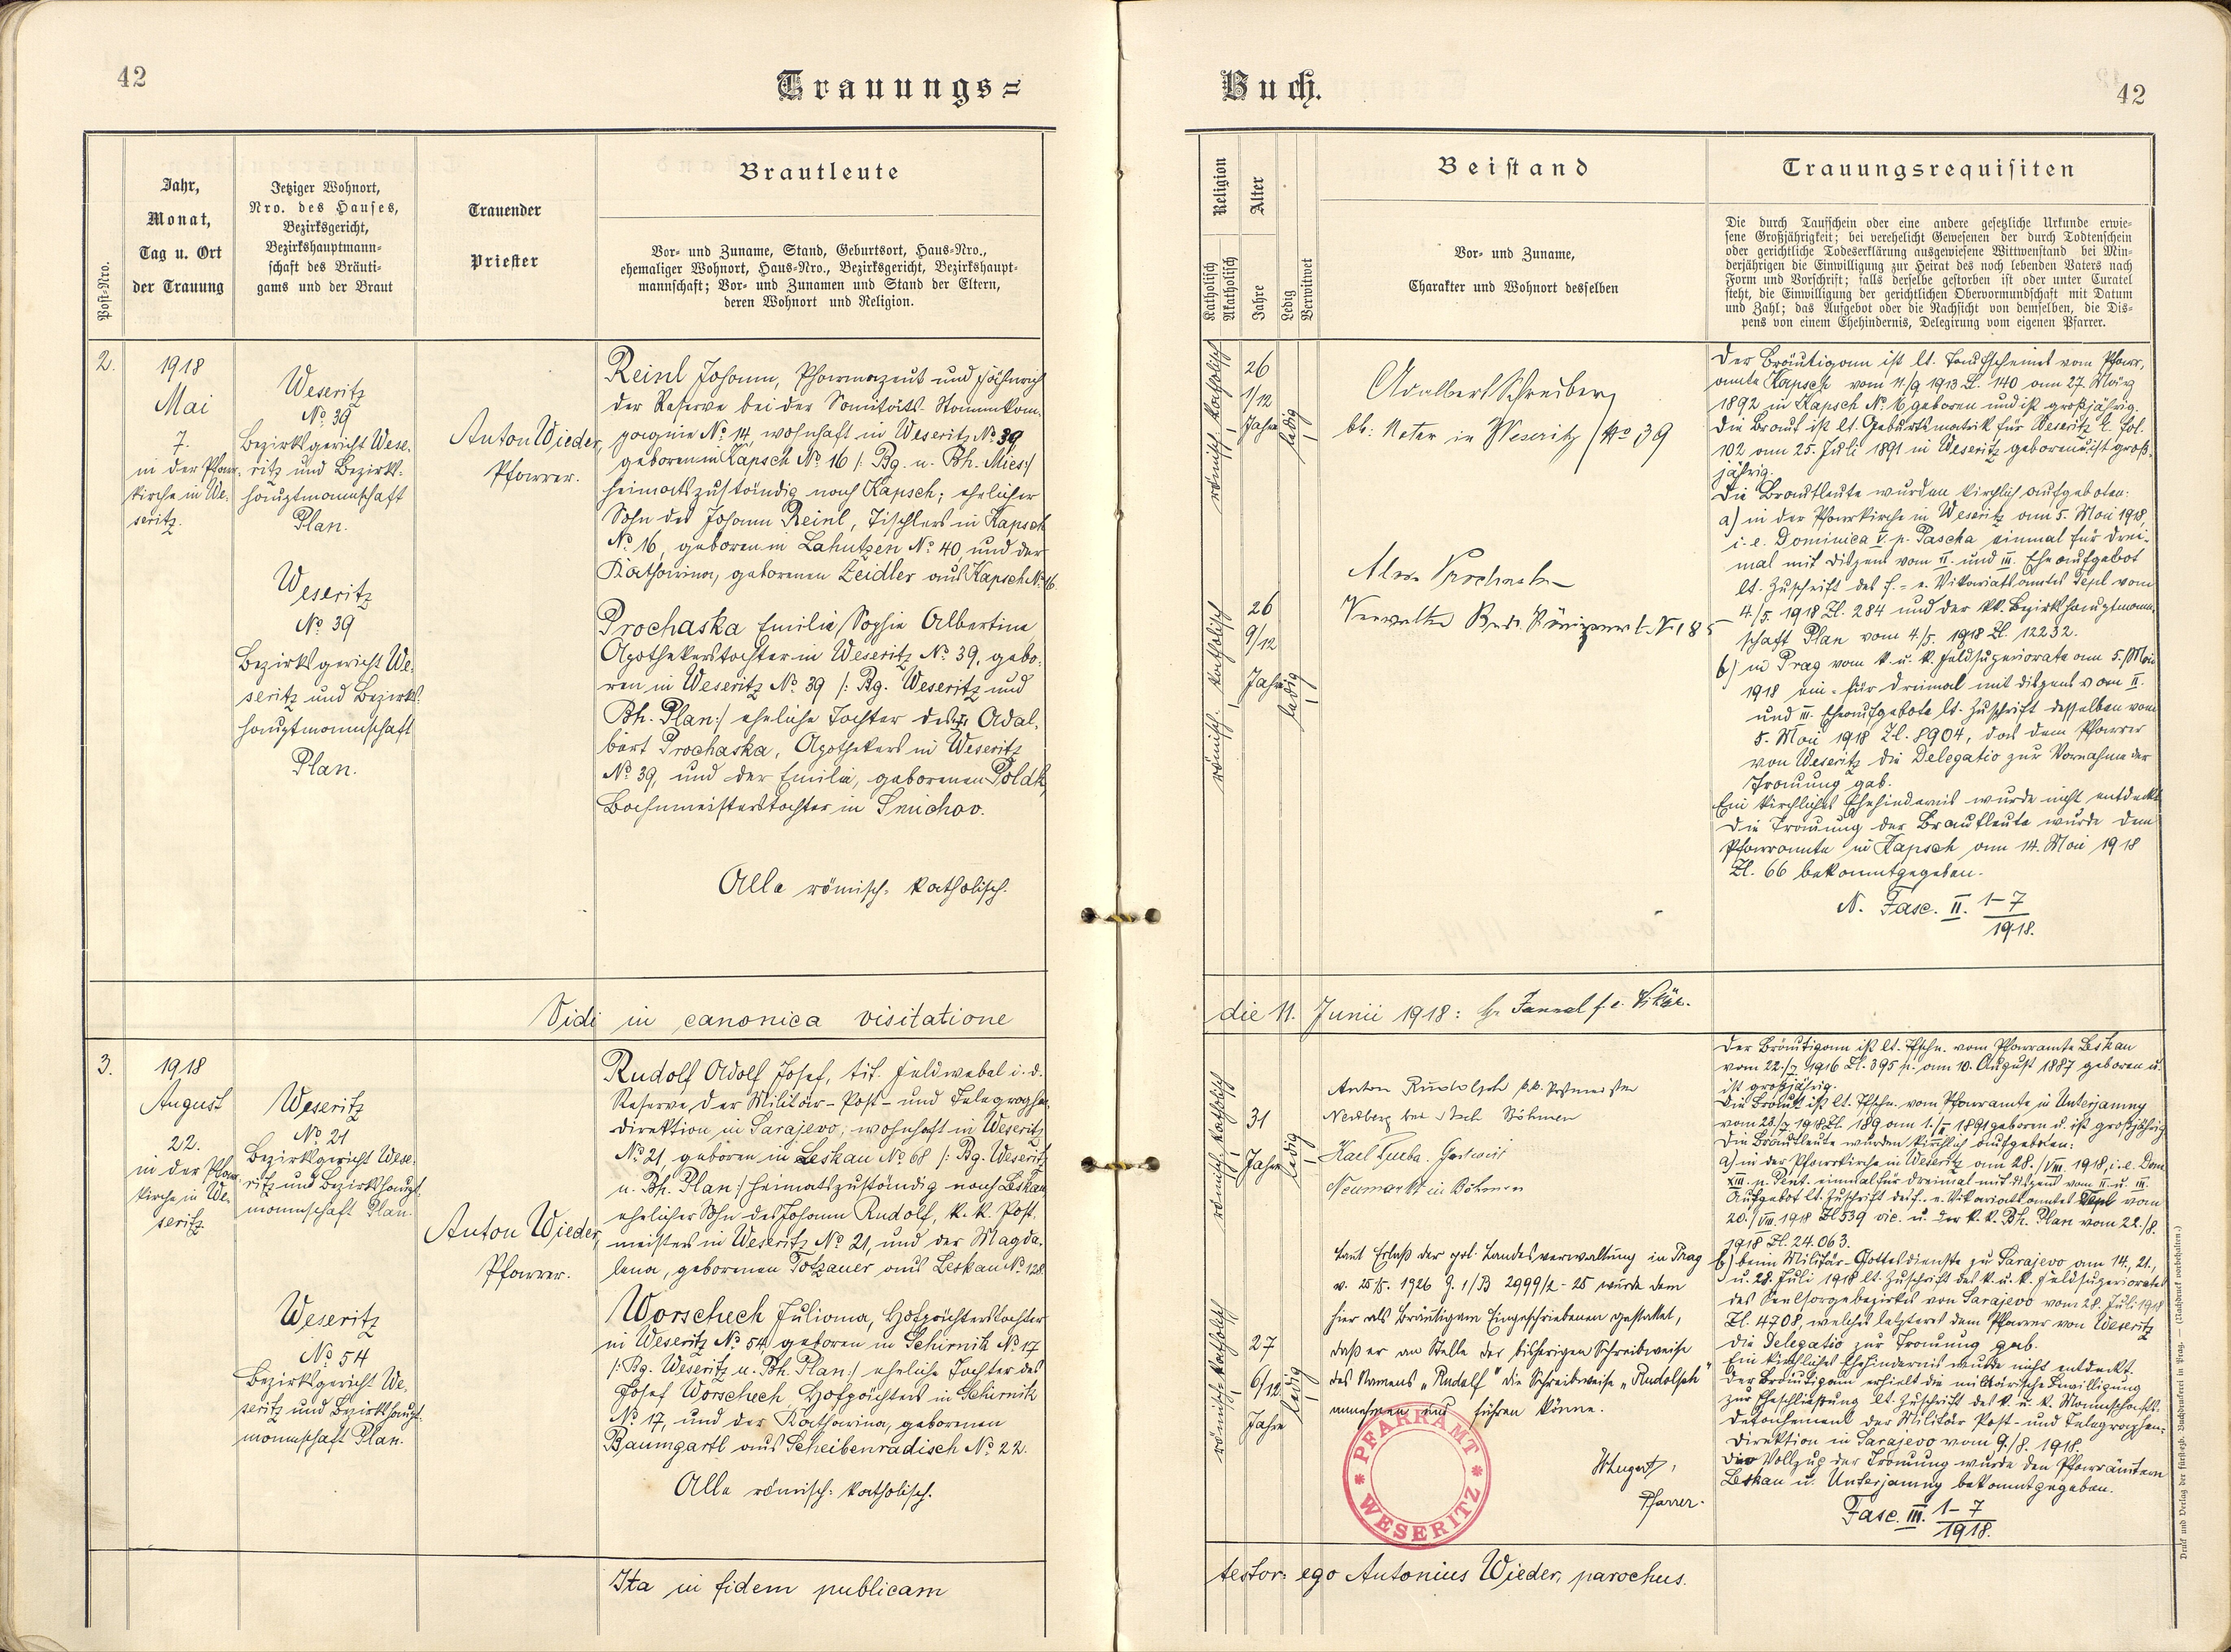 42
Trauungs=
Post=Nro.
Jahr,
Monat,
Tag u. Ort
der Trauung
Jetziger Wohnort,
Nro. des Hauses,
Bezirksgericht,
Bezirkshauptmann=
schaft des Bräuti=
gams und der Braut
Trauender
Priester
Brautleute
Vor= und Zuname, Stand, Geburtsort, Haus=Nro.,
ehemaliger Wohnort, Haus=Nro., Bezirksgericht, Bezirkshaupt=
mannschaft; Vor= und Zunamen und Stand der Eltern,
deren Wohnort und Religion.
2.
1918
Mai
7.
in der Pfarr-
kirche in We-
seritz.
Weseritz
No. 39
Bezirksgericht Wese-
ritz und Bezirks-
hauptmannschaft
Plan.
Weseritz
No. 39
Bezirksgericht We-
seritz und Bezirks-
hauptmannschaft
Plan.
Anton Wieder,
Pfarrer.
Reinl Johann, Pharmazeut und Fähnrich
der Reserve bei der Sanitäts-Stammkom-
pagnie No. 14, wohnhaft in Weseritz No. 39,
geboren in Kapsch No. 16 /: Bg. u. Bh. Mies:/
heimatszuständig nach Kapsch; ehelicher
Sohn des Johann Reinl, Tischlers in Kapsch
No. 16, geboren in Lahutzen No. 40, und der
Katharina, geborenen Zeidler aus Kapsch No. 16.
Prochaska Emilie Sophie Albertine
Apothekerstochter in Weseritz No. 39, gebo-
ren in Weseritz No. 39 /: Bg. Weseritz und
Bh. Plan:/ eheliche Tochter des Adal-
bert Prochaska, Apothekers in Weseritz
No. 39, und der Emilie, geborenen Poldt,
Bahnmeisterstochter in Smichov.
Alle römisch-katholisch.
Vidi in canonica visitatione
3.
1918
August
22.
in der Pfarr-
kirche in We-
seritz.
Weseritz
No. 21
Bezirksgericht Wese-
ritz und Bezirkshaupt-
mannschaft Plan.
Weseritz
No. 54
Bezirksgericht We-
seritz und Bezirkshaupt-
mannschaft Plan.
Anton Wieder,
Pfarrer.
Rudolf Adolf Josef, tit. Feldwebel i. d.
Reserve der Militär-Post- und Telegraphen-
direktion in Sarajevo, wohnhaft in Weseritz
No. 21, geboren in Leskau No. 68 /: Bg. Weseritz
u. Bh. Plan:/ heimatszuständig nach Leskau
ehelicher Sohn des Johann Rudolf, k. k. Post-
meisters in Weseritz No. 21, und der Magda-
lena, geborenen Totzauer aus Leskau No. 128.
Worschech Juliana, Hofpächterstochter
in Weseritz No. 54, geboren in Schirnik No. 17
/: Bg. Weseritz u. Bh. Plan:/ eheliche Tochter des
Josef Worschech, Hofpächters in Schirnik
No. 17, und der Katharina, geborenen
Baumgartl aus Scheibenradisch No. 22.
Alle römisch-katholisch.
Ita in fidem publicam
Buch.
42
Religion
Katholisch
Akatholisch
Alter
Jahre
Ledig
Verwitwet
Beistand
Vor= und Zuname,
Charakter und Wohnort desselben
Trauungsrequisiten
Die durch Taufschein oder eine andere gesetzliche Urkunde erwie=
sene Großjährigkeit; bei verehelicht Gewesenen der durch Todtenschein
oder gerichtliche Todeserklärung ausgewiesene Wittwenstand bei Min=
derjährigen die Einwilligung zur Heirat des noch lebenden Vaters nach
Form und Vorschrift; falls derselbe gestorben ist oder unter Curatel
steht, die Einwilligung der gerichtlichen Obervormundschaft mit Datum
und Zahl; das Aufgebot oder die Nachsicht von demselben, die Dis=
pens von einem Ehehindernis, Delegirung vom eigenen Pfarrer.
römisch-katholisch
26
1/12
Jahre
ledig
römisch-katholisch
26
9/12
Jahre
ledig
Adalbert Schreiber
Notar in Weseritz No 39
Verwalter
Der Bräutigam ist lt. Taufscheines vom Pfarr-
amte Kapsch vom 11/9 1913 Z. 140 am 27. März
1892 in Kapsch No. 16 geboren und ist großjährig.
Die Braut ist lt. Geburtsmatrik für Weseritz fol.
102 am 25. Juli 1891 in Weseritz geboren u. ist groß-
jährig.
Die Brautleute wurden kirchlich aufgeboten:
a) in der Pfarrkirche in Weseritz am 5. Mai 1918,
i. e. Dominica V. p. Pascha einmal für drei-
mal mit Dispens vom II. und III. Eheaufgebot
lt. Zuschrift des f.-e. Vikariatsamtes Tepl vom
4./5. 1918 Zl. 284 und der kk. Bezirkshauptmann-
schaft Plan vom 4./5. 1918 Zl. 12232.
b) in Prag vom k. u. k. Feldsuperiorate am 5. Mai
1918 ein- für dreimal mit Dispens vom II.
und III. Eheaufgebote lt. Zuschrift desselben vom
5. Mai 1918 Zl. 8904, das dem Pfarrer
von Weseritz die Delegatio zur Vornahme der
Trauung gab.
Ein kirchliches Ehehindernis wurde nicht entdeckt.
Die Trauung der Brautleute wurde dem
Pfarramte in Kapsch am 14. Mai 1918
Zl. 66 bekanntgegeben.
N. Fasc. II. 1-7
1918.
die 11. Junii 1918: f. e. Vikär.
römisch-katholisch
31
Jahre
ledig
römisch-katholisch
27
6/12
Jahre
ledig
Anton Rudolph k.k. Postmeister
Neuberg bei Asch Böhmen
Karl Gastwirt
Neumarkt in Böhmen
Laut Erlaß der pol. Landesverwaltung in Prag
v. 25/5. 1926 9. 1/B 2999/2 - 25 wurde dem
hier als Bräutigam Eingeschriebenen gestattet,
daß er an Stelle der bisherigen Schreibweise
des Namens „Rudolf" die Schreibweise „Rudolph"
annehmen und führen könne.
Pfarrer.
PFARRAMT
WESERITZ
Der Bräutigam ist lt. Tfschn. vom Pfarramte Leskau
vom 22./7. 1916 Zl. 395 p. am 10. August 1887 geboren u.
ist großjährig.
Die Braut ist lt. Tfschn. vom Pfarramte in Unterjamny
vom 28./7. 1918 Zl. 189 am 1./II. 1891 geboren u. ist großjährig.
Die Brautleute wurden kirchlich aufgeboten:
a) in der Pfarrkirche in Weseritz am 28./VIII. 1918, i. e. Dom.
XIII. p. Pent. einmal für dreimal mit Dispens vom II. u. III.
Aufgebot lt. Zuschrift des f.-e. Vikariatsamtes Tepl vom
20./VIII. 1918 Zl 539 vic. u. der k. k. Bh. Plan vom 22./8.
1918 Zl. 24.063.
b) beim Militär-Gottesdienste zu Sarajevo am 14., 21.,
u. 28. Juli 1918 lt. Zuschrift des k. u. k. Feldsuperiorates
des Seelsorgebezirkes von Sarajevo vom 28. Juli 1918
Zl. 4708, welches letzteres dem Pfarrer von Weseritz
die Delegatio zur Trauung gab.
Ein kirchliches Ehehindernis wurde nicht entdeckt.
Der Bräutigam erhielt die militärische Bewilligung
zur Eheschließung lt. Zuschrift des k. u. k. Mannschafts-
detachement der Militär Post- und Telegraphen-
direktion in Sarajevo vom 9./8. 1918.
Der Vollzug der Trauung wurde den Pfarrämtern
Leskau u. Unterjamny bekanntgegeben.
Fasc. III. 1-7
1918.
testor: ego Antonius Wieder, parochus.
Druck und Verlag der fürsterzb. Buchdruckerei in Prag. — (Nachdruck vorbehalten.)